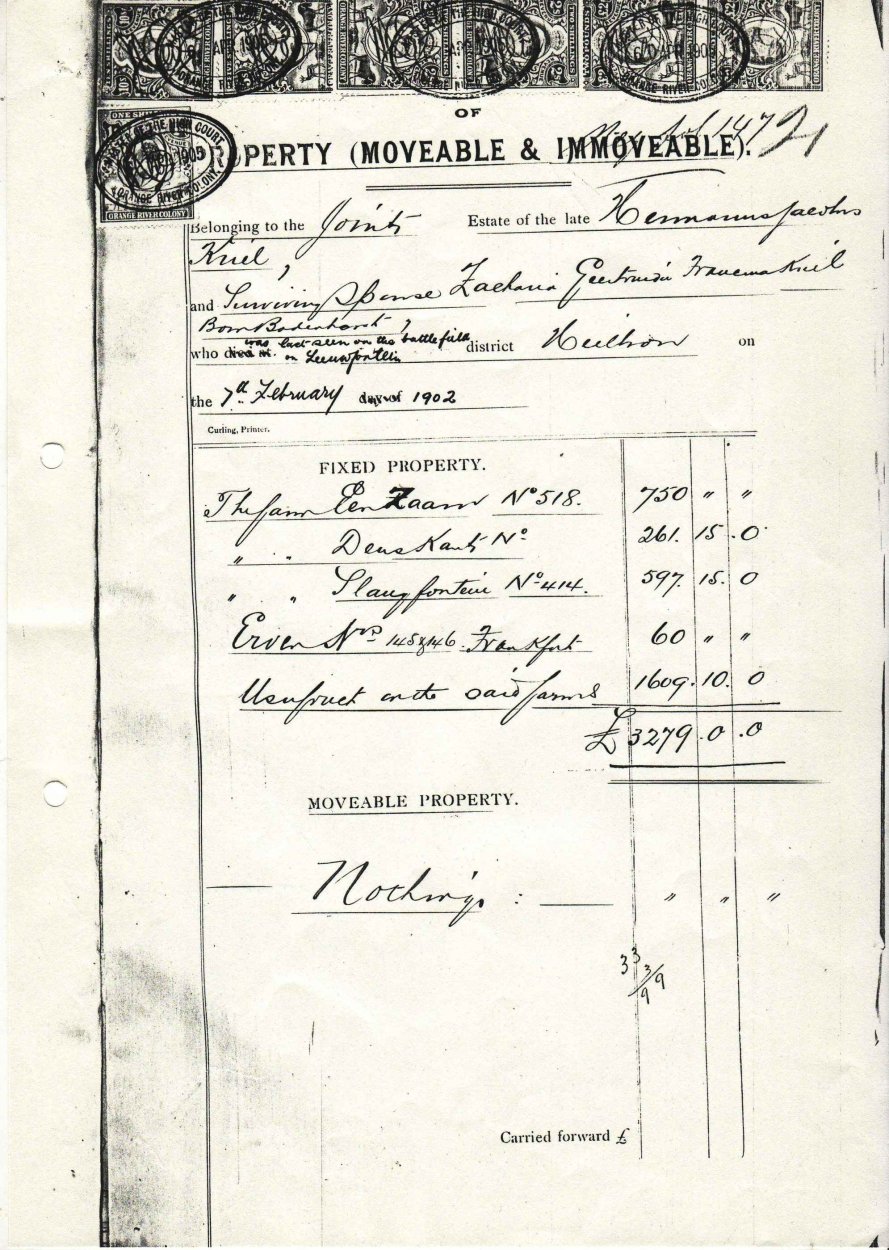 OF
PROPERTY (MOVEABLE & IMMOVEABLE).
ONE SHILLING
MASTER OF THE HIGH COURT
APR 1905
ORANGE RIVER COLONY.
ORANGE RIVER COLONY
Belonging to the Joint Estate of the late Hermanus Jacobus
Kriel,
and Surviving Spouse Zacharia Geertruida Francina Kriel
Born Badenhorst,
was last seen on the battlefield
who died at on Leeuwfontein district Heilbron on
the 7th February day of 1902
Curling, Printer.
FIXED PROPERTY.
The farm Een Zaam No 518. 750 " "
" " Deus Kant No 261. 15. 0
" " Slangfontein No 414. 597. 15. 0
Erven Nos 145 & 146 Frankfort 60 " "
Usufruct on the said farms 1609. 10. 0
£ 3279. 0. 0
MOVEABLE PROPERTY.
Nothing : " " "
33
3/9
9
Carried forward £